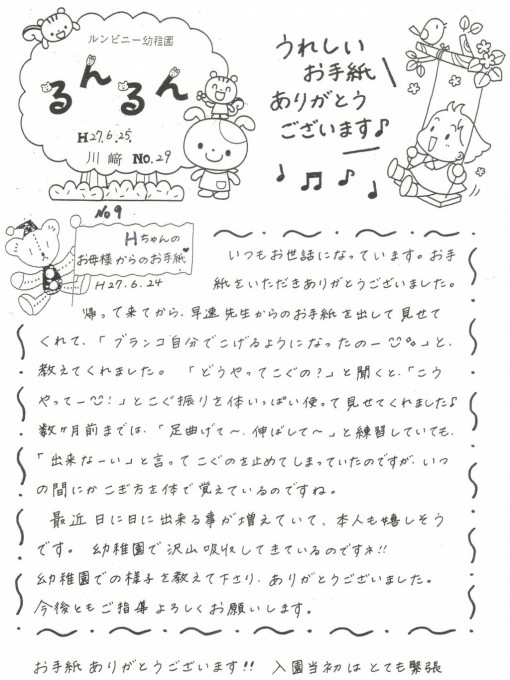 ルンビニー幼稚園
るんるん
H27.6.25.
川﨑 No.29
うれしい
お手紙
ありがとう
ございます♪
No9
Hちゃんの
お母様からのお手紙♥
H27.6.24
いつもお世話になっています。お手
紙をいただきありがとうございました。
帰って来てから、早速先生からのお手紙を出して見せて
くれて、「ブランコ自分でこげるようになったのー」と、
教えてくれました。「どうやってこぐの?」と聞くと、「こう
やってー!」とこぐ振りを体いっぱい使って見せてくれました♪
数ヶ月前までは、「足曲げて〜、伸ばして〜」と練習していても、
「出来なーい」と言ってこぐのを止めてしまっていたのですが、いつ
の間にかこぎ方を体で覚えているのですね。
最近日に日に出来る事が増えていて、本人も嬉しそう
です。幼稚園で沢山吸収してきているのですネ!!
幼稚園での様子を教えて下さり、ありがとうございました。
今後ともご指導よろしくお願いします。
お手紙ありがとうございます!! 入園当初はとても緊張